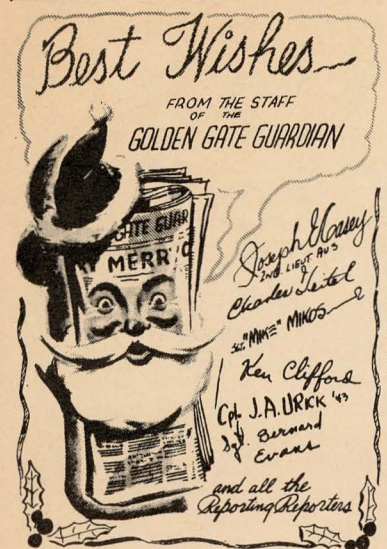 Best Wishes
FROM THE STAFF
OF THE
GOLDEN GATE GUARDIAN
GATE GUAR
MERRY C
Joseph G Casey
2ND. LIEUT AUS
Charles Teitel
SGT. "MIKE" MIKOS
Ken Clifford
Cpl. J.A. URICK '43
Sgt. Bernard
Evans
and all the
Reporting Reporters